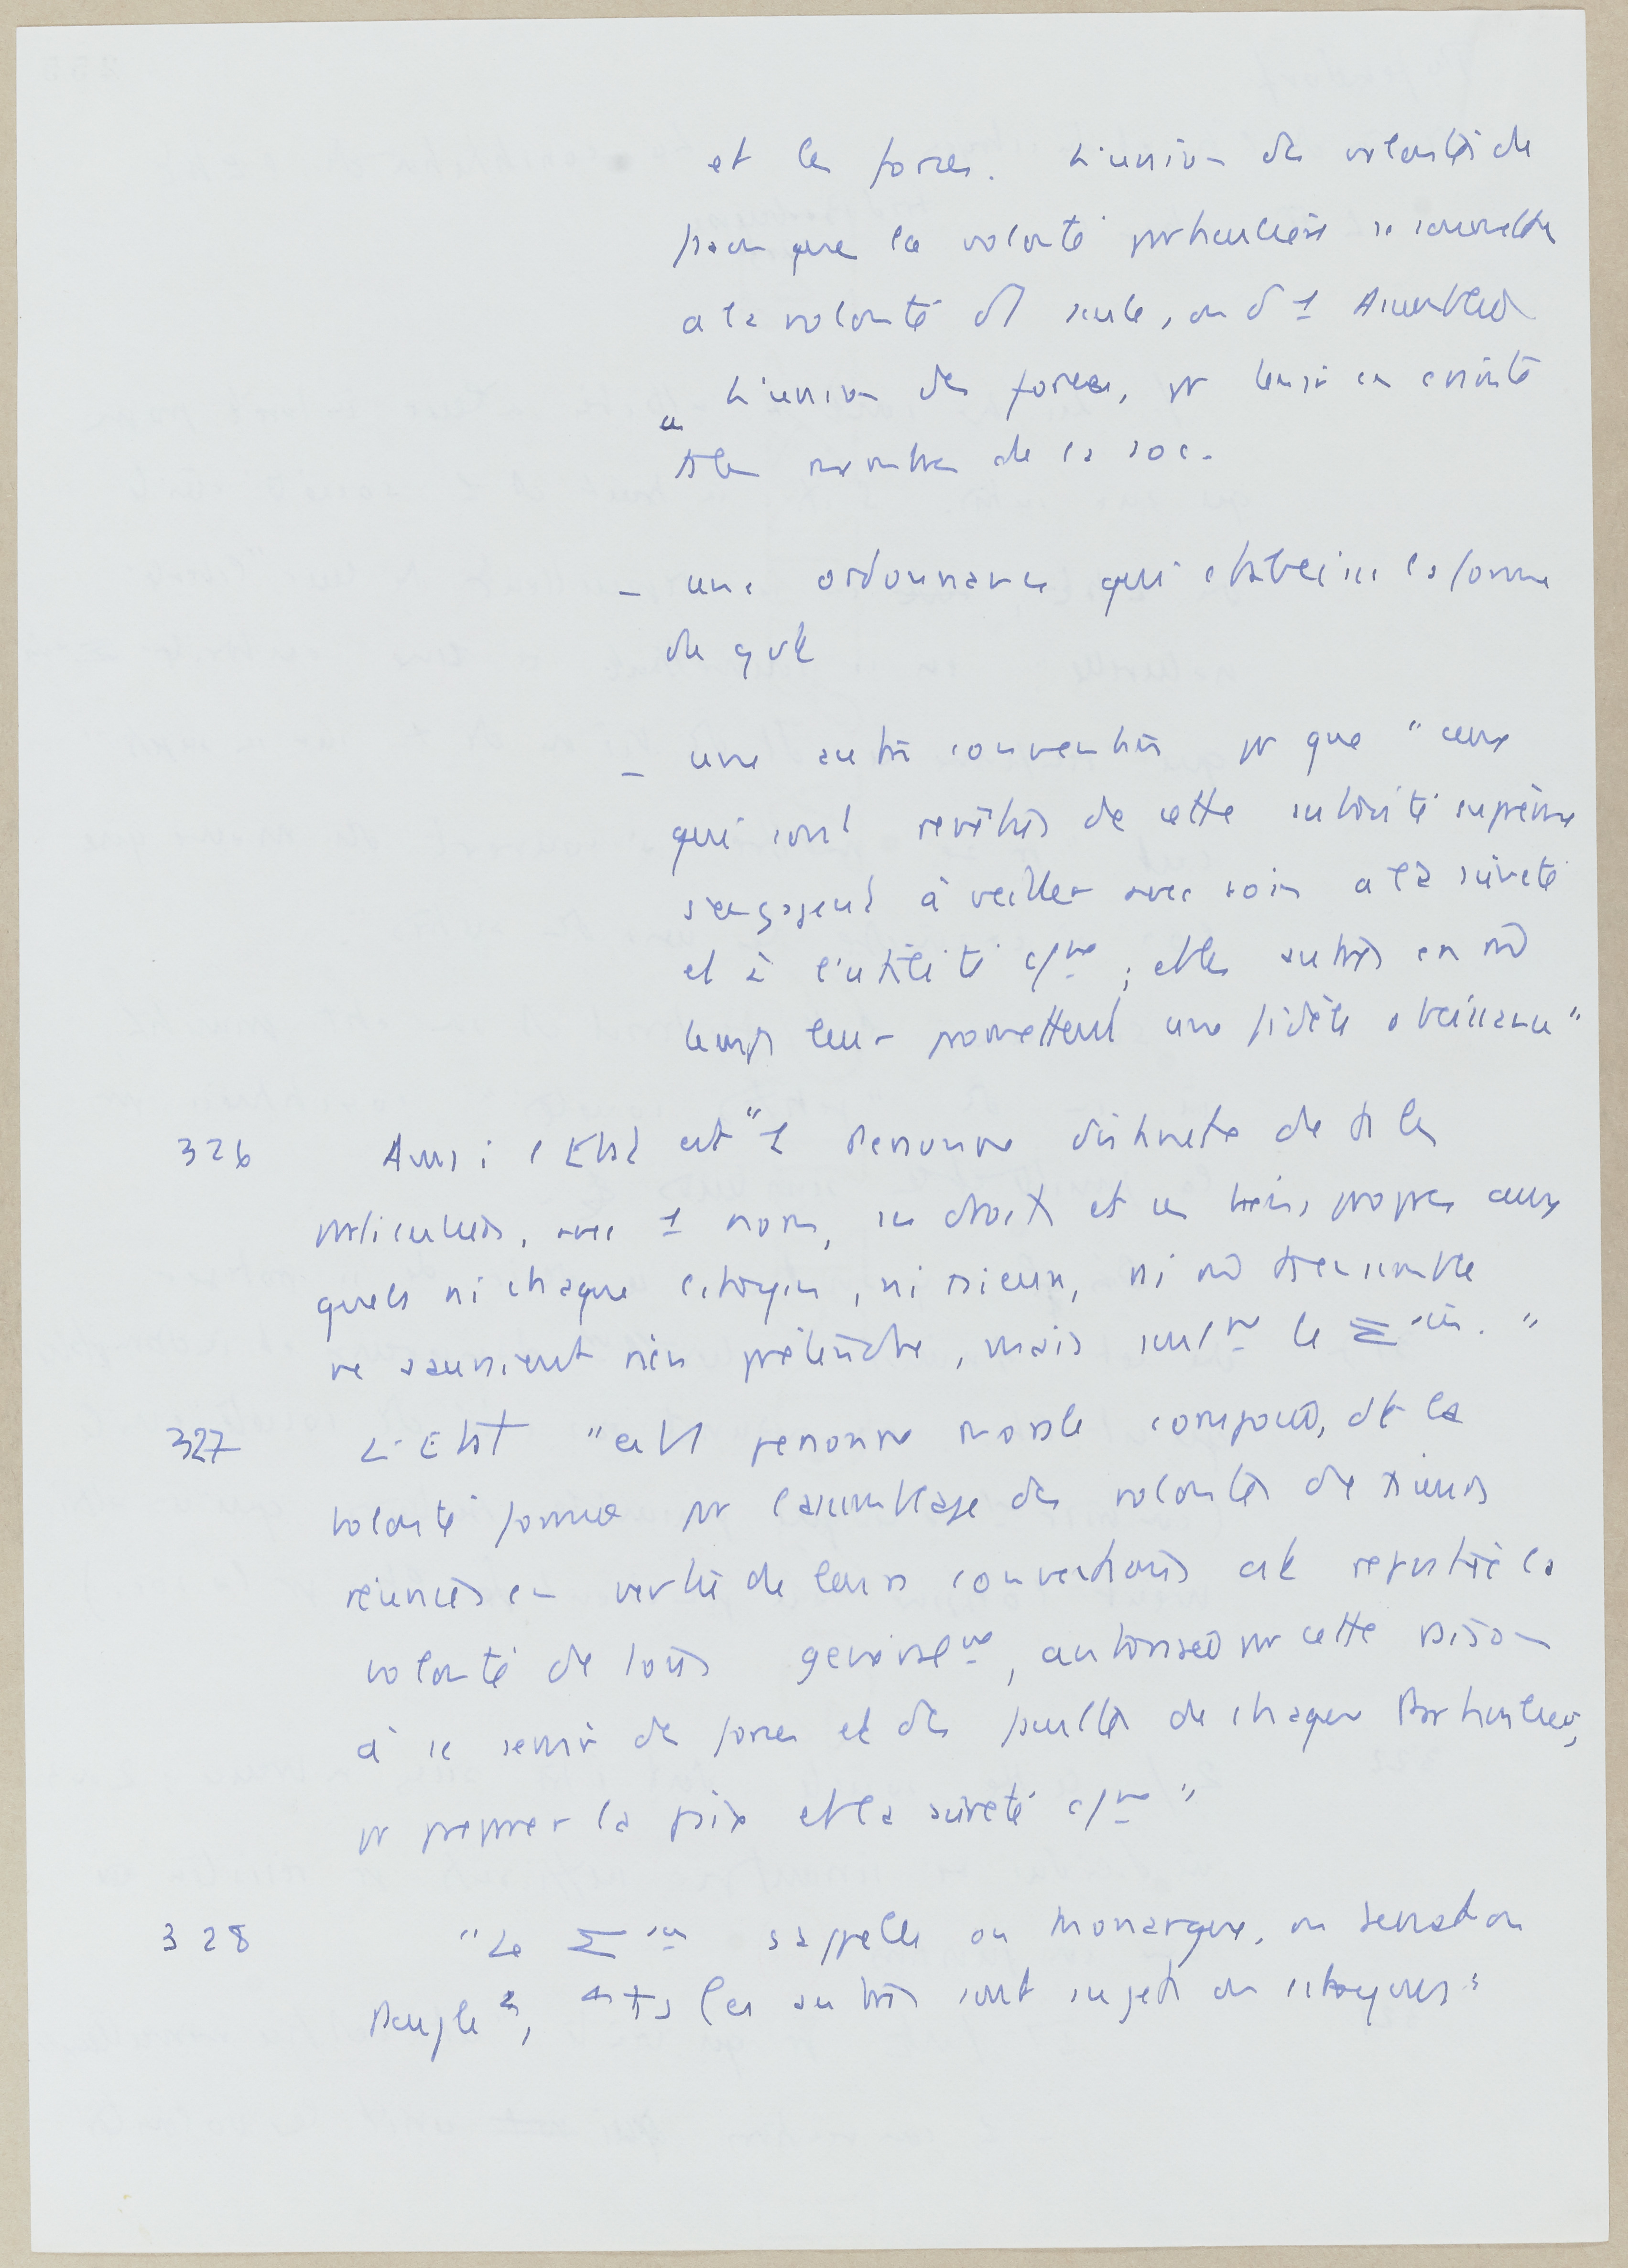 et les forces. L'union des volontés de
façon que les volontés particulières se soumettent
à la volonté d'1 seule, ou d'1 Assemblée
L'union des forces, pr tenir en crainte
ts les membres de la soc.
- une ordonnance qui établisse la forme
de gvt
- une autre convention pr que "ceux
qui sont revêtus de cette autorité suprême
s'engagent à veiller avec soin à la sûreté
et à l'utilité c/ne ; et les autres en mê
temps leur promettent une fidèle obéissance"
326 Ainsi l'Etat est "1 personne distincte de ts les
particuliers, avec 1 nom, ses droits et ses biens propres aux
quels ni chaque citoyen, ni plsieurs, ni mê ts ensemble
ne sauraient rien prétendre, mais seult le Σ ain."
327 L'Etat "est 1 personne morale composée, dt la
volonté formée pr l'assemblage des volontés de plsieurs
réunies en vertu de leurs conventions est réputée la
volonté de tous généralt, autorisée pr cette raison
à se servir des forces et des facultés de chaque Particulier,
pr procurer la paix et la sûreté c/ne"
328 "Le Σ ain s'appelle ou Monarque, ou Senat ou
Peuple", ts les autres sont sujets ou citoyens"